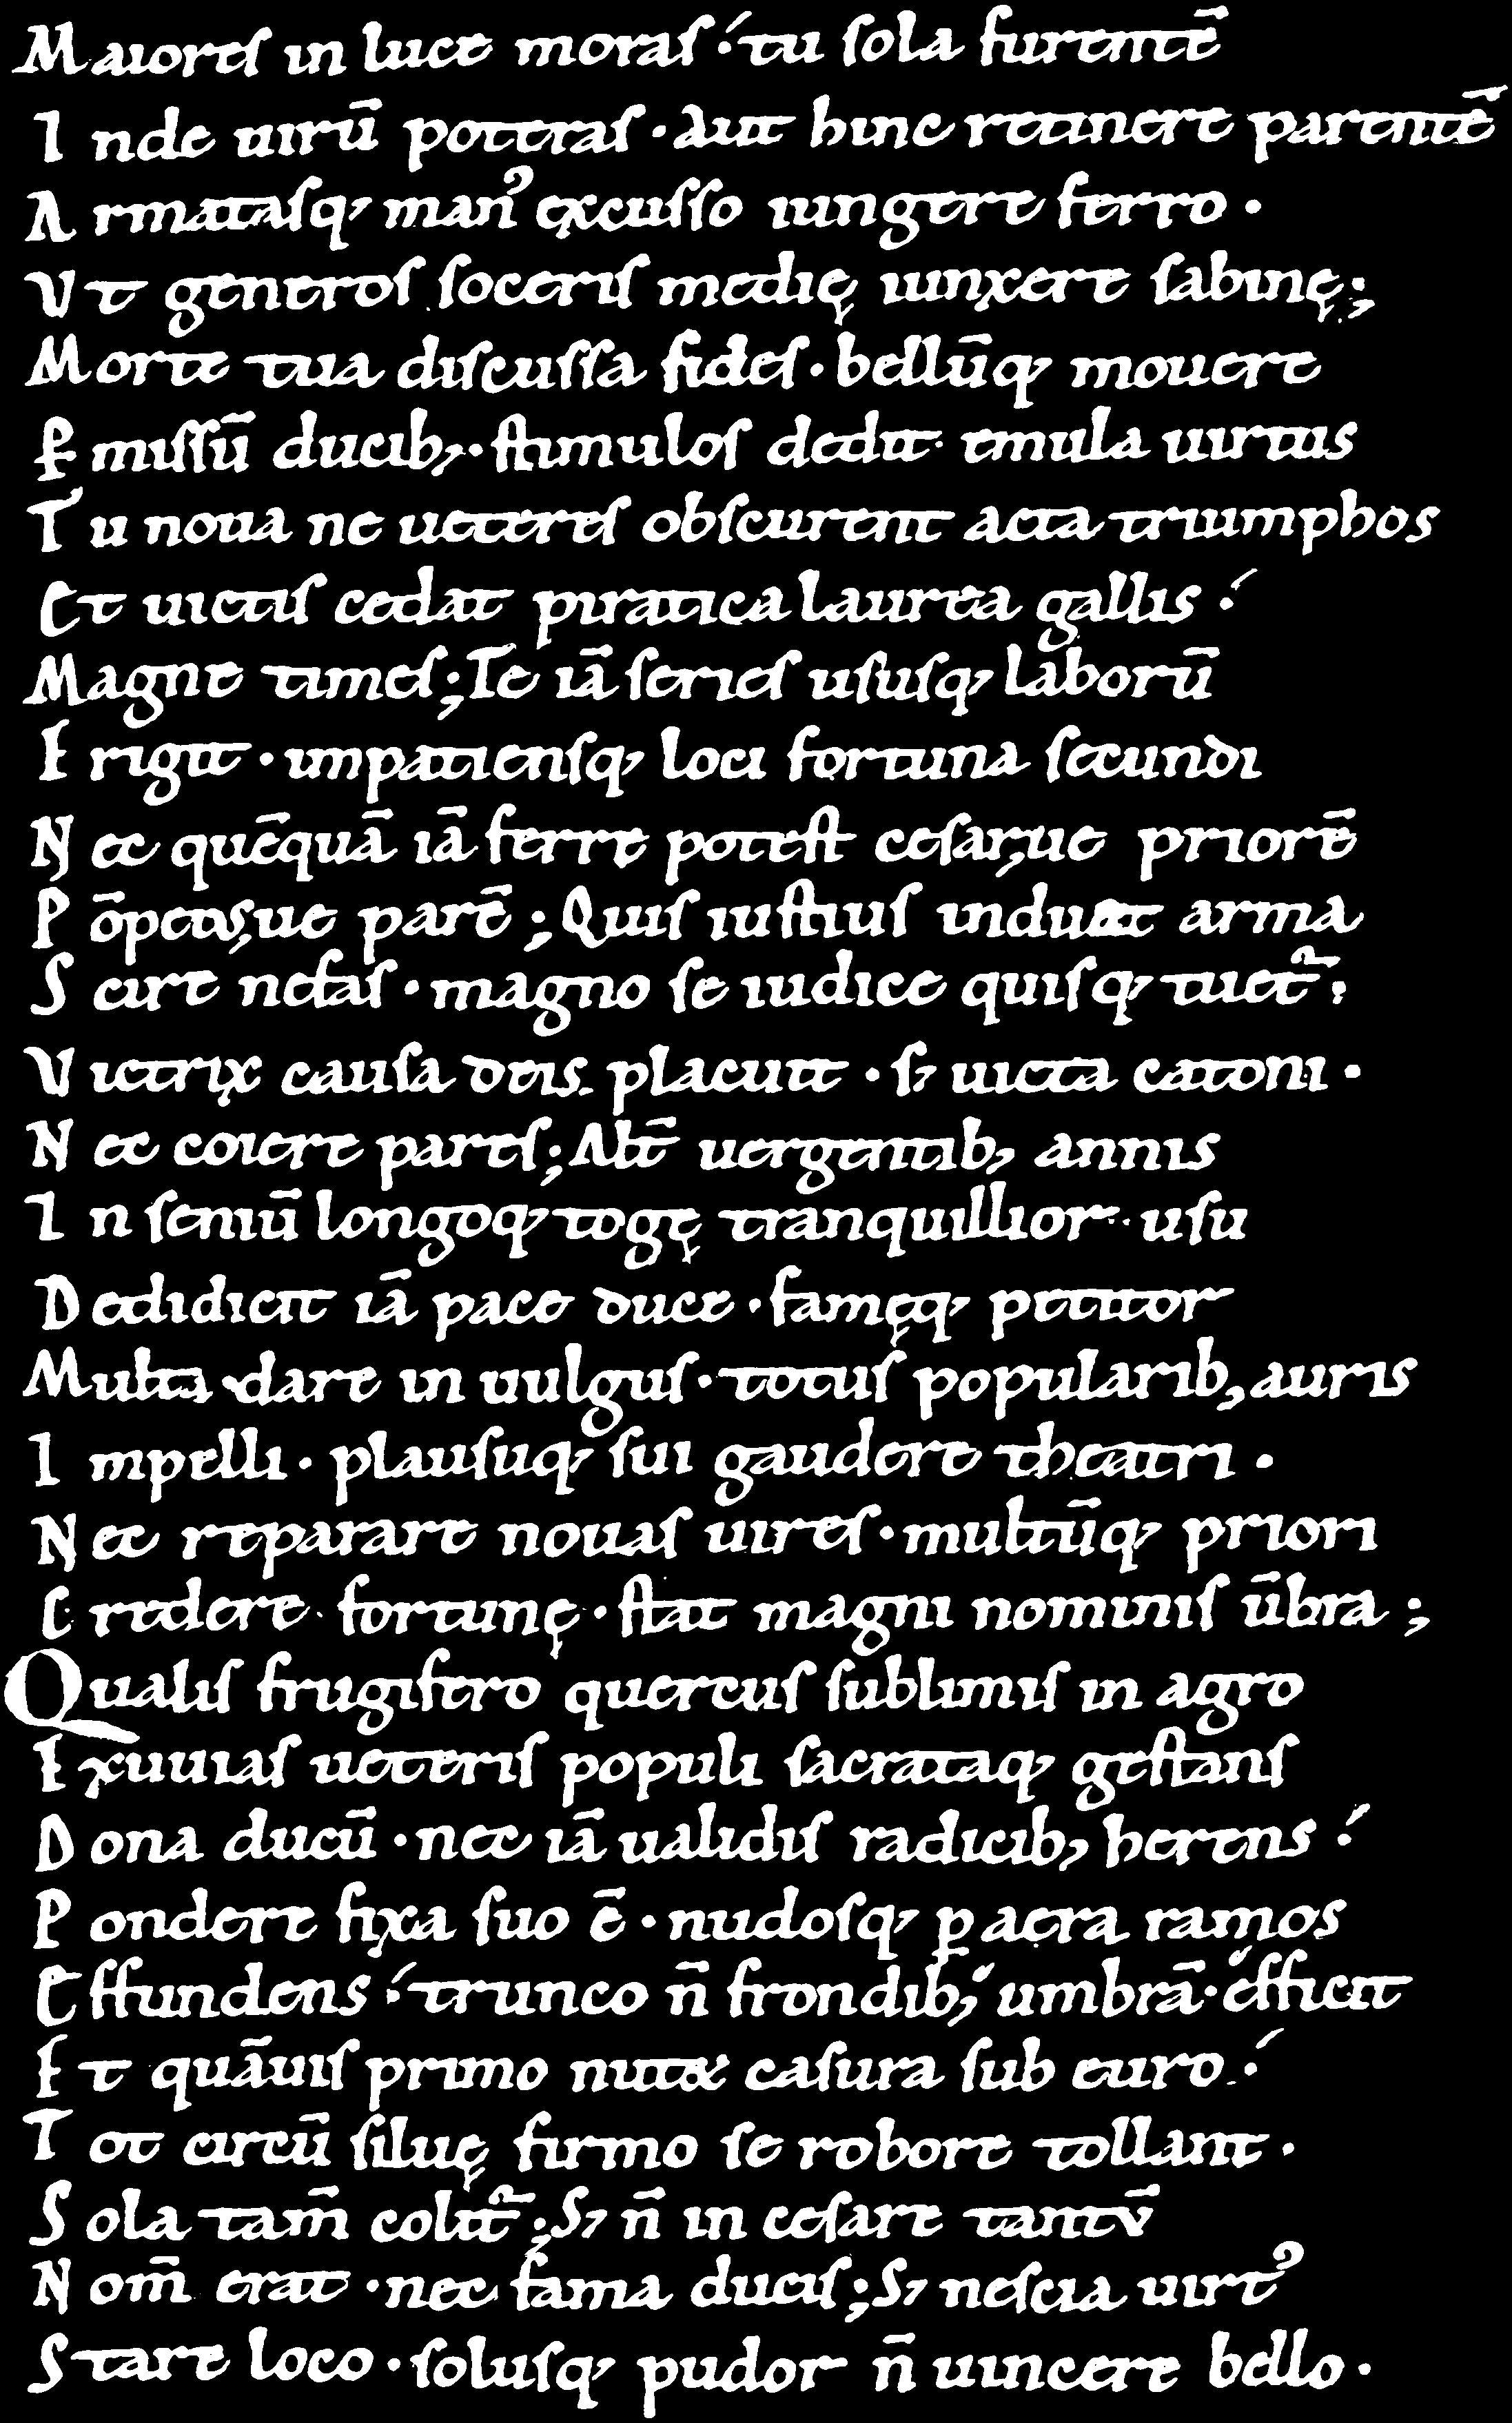 Maioreſ in luce moraſ ·́ tu ſola furentē
I nde uirū poteraſ · aut hinc retinere parentē
A rmataſq; man᾿ excuſſo iungere ferro ·
V t generoſ ſoceriſ medię iunxere ſabinę ;
Morte tua diſcuſſa fideſ · bellūq; mouere
ꝑ miſſū ducib; · ſtimuloſ dedit · emula uirtus
T u noua ne uetereſ obſcurent acta triumphos
E t uictiſ cedat piratica laurea gallis ·́
Magne timeſ ; Te iā ſerieſ uſuſq; laborū
E rigit · impatienſq; loci fortuna ſecundi
N ec quēquā iā ferre poteſt ceſar,ue priorē
P ōpeiuſ,ue parē ; Quiſ iuſtiuſ induat arma
S cire nefaſ · magno ſe iudice quiſq; tuet᷑ ·
V ictrix cauſa deis placuit · ſ; uicta catoni ·
N ec coiere parteſ ; Alt̄ uergentib; annis
I n ſeniū longoq; togę tranquillior · uſu
D edidicit iā pace duce · famęq; petitor
Multa · dare in uulguſ · totuſ popularib; auris
I mpelli · plauſuq; ſui gaudere theatri ·
N ec reparare nouaſ uireſ · multūq; priori
C redere · fortunę · ſtat magni nominiſ ūbra ;
Qualiſ frugifero quercuſ ſublimiſ in agro
E xuuiaſ ueteriſ populi ſacrataq; geſtanſ
D ona ducū · nec iā ualidiſ radicib; herens ·́
P ondere fixa ſuo ē · nudoſq; ꝑ aera ramos
E ffundens ·́ trunco n̄ frondib; umbrā · efficit
E t quāuiſ primo nutæ caſura ſub euro ·́
T ot circū ſiluę firmo ſe robore tollant ·
S ola tam̄ colit᷑ ; S; n̄ in ceſare tantv̄
N om̄ erat · nec fama duciſ ; S; neſcia uirt᾿
S tare loco · ſoluſq; pudor n̄ uincere bello ·